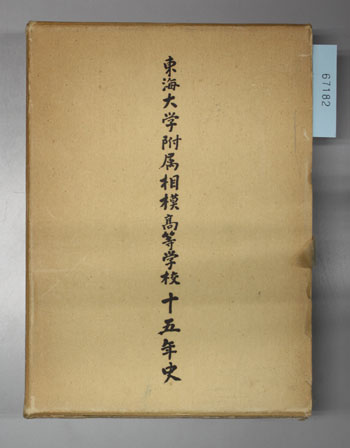 東海大学附属相模高等学校十五年史
67182